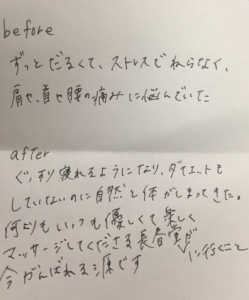 before
ずっとだるくて、ストレスでねらなく、
肩や、首や腰の痛みに悩んでいた
after
ぐっすり寝れるようになり、ダイエットも
していないのに自然と体がしまってきた。
何よりもいつも優しくて楽しく
マッサージしてくださる長春堂が
に行くこと
今がんばれる源です